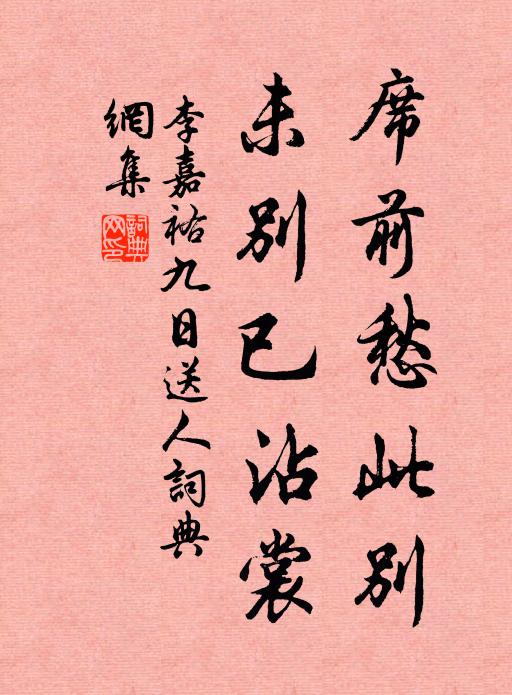 席前愁此別
未別已沾裳
李嘉祐九日送人詞典
網集
詞典
网印